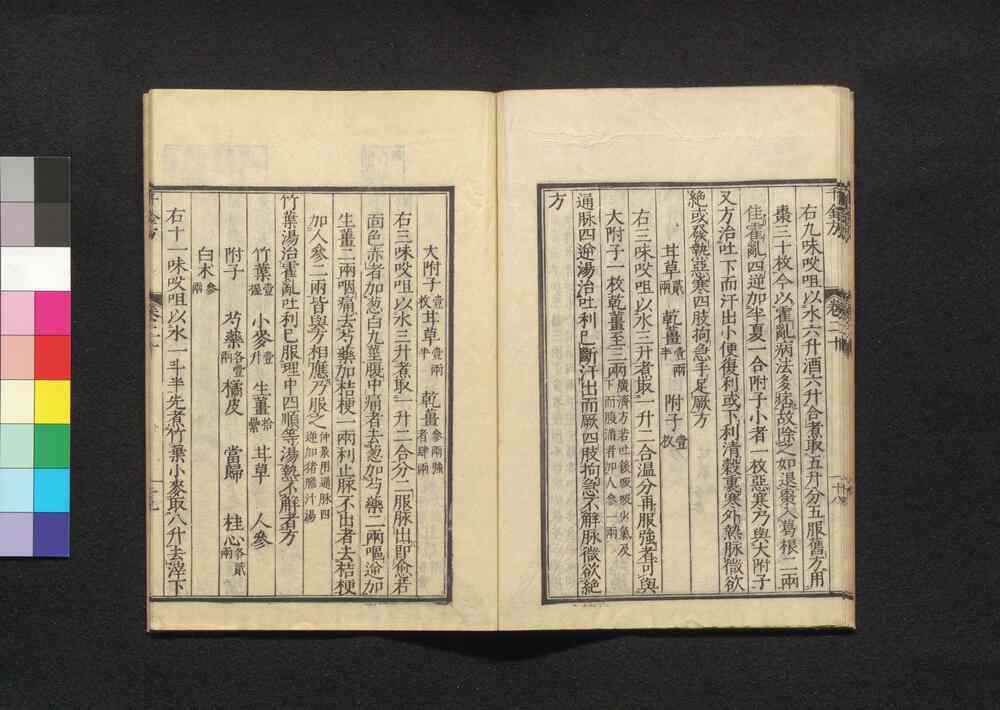 千金方 卷二十 十八
右九味㕮咀以水六升酒六升合煮取五升分五服舊方用
棗三十枚今以霍亂病法多痞故除之如退棗入葛根二兩
佳霍亂四逆加半夏一合附子小者一枚惡寒乃與大附子
又方治吐下而汗出小便復利或下利清穀裏寒外熱脉微欲
絕或發熱惡寒四肢拘急手足厥方
甘草貳兩 乾薑壹兩半 附子壹枚
右三味㕮咀以水三升煮取一升二合温分再服強者可與
大附子一枚乾薑至三兩廣濟方若吐後吸吸少氣及下而腹滿者加人參一兩
通脉四逆湯治吐利已斷汗出而厥四肢拘急不解脉微欲絕
方
大附子壹枚 甘草壹兩半 乾薑參兩強者肆兩
右三味㕮咀以水三升煮取一升二合分二服脉出即愈若
面色赤者加葱白九莖腹中痛者去葱加芍藥二兩嘔逆加
生薑二兩咽痛去芍藥加桔梗一兩利止脉不出者去桔梗
加人參二兩皆與方相應乃服之仲景用通脉四逆加猪膽汁湯
竹葉湯治霍亂吐利已服理中四順等湯熱不解者方
竹葉壹握 小麥壹升 生薑拾累 甘草 人參
附子 芍藥各壹兩 橘皮 當歸 桂心各貳兩
白术參兩
右十一味㕮咀以水一斗半先煮竹葉小麥取八升去滓下